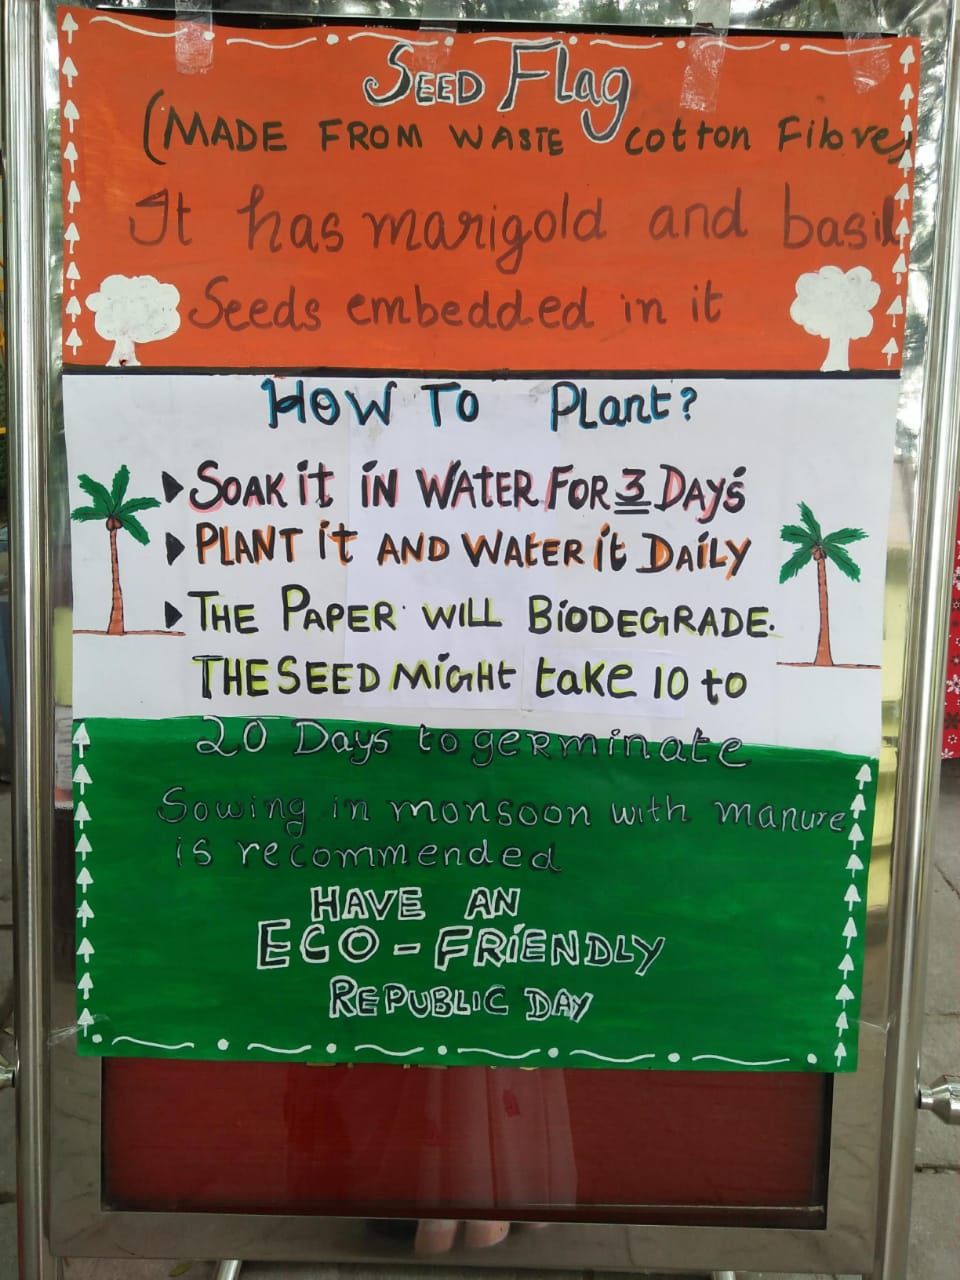 SEED Flag
(MADE FROM WASTE cotton Fibre)
It has marigold and basil
Seeds embedded in it
HOW TO Plant?
SOAK it IN WATER FOR 3 DAYS
PLANT it AND WATER it DAILY
THE PAPER WILL BIODEGRADE.
THE SEED MIGHT take 10 to
20 Days to germinate
Sowing in monsoon with manure
is recommended
HAVE AN
ECO-FRIENDLY
REPUBLIC DAY